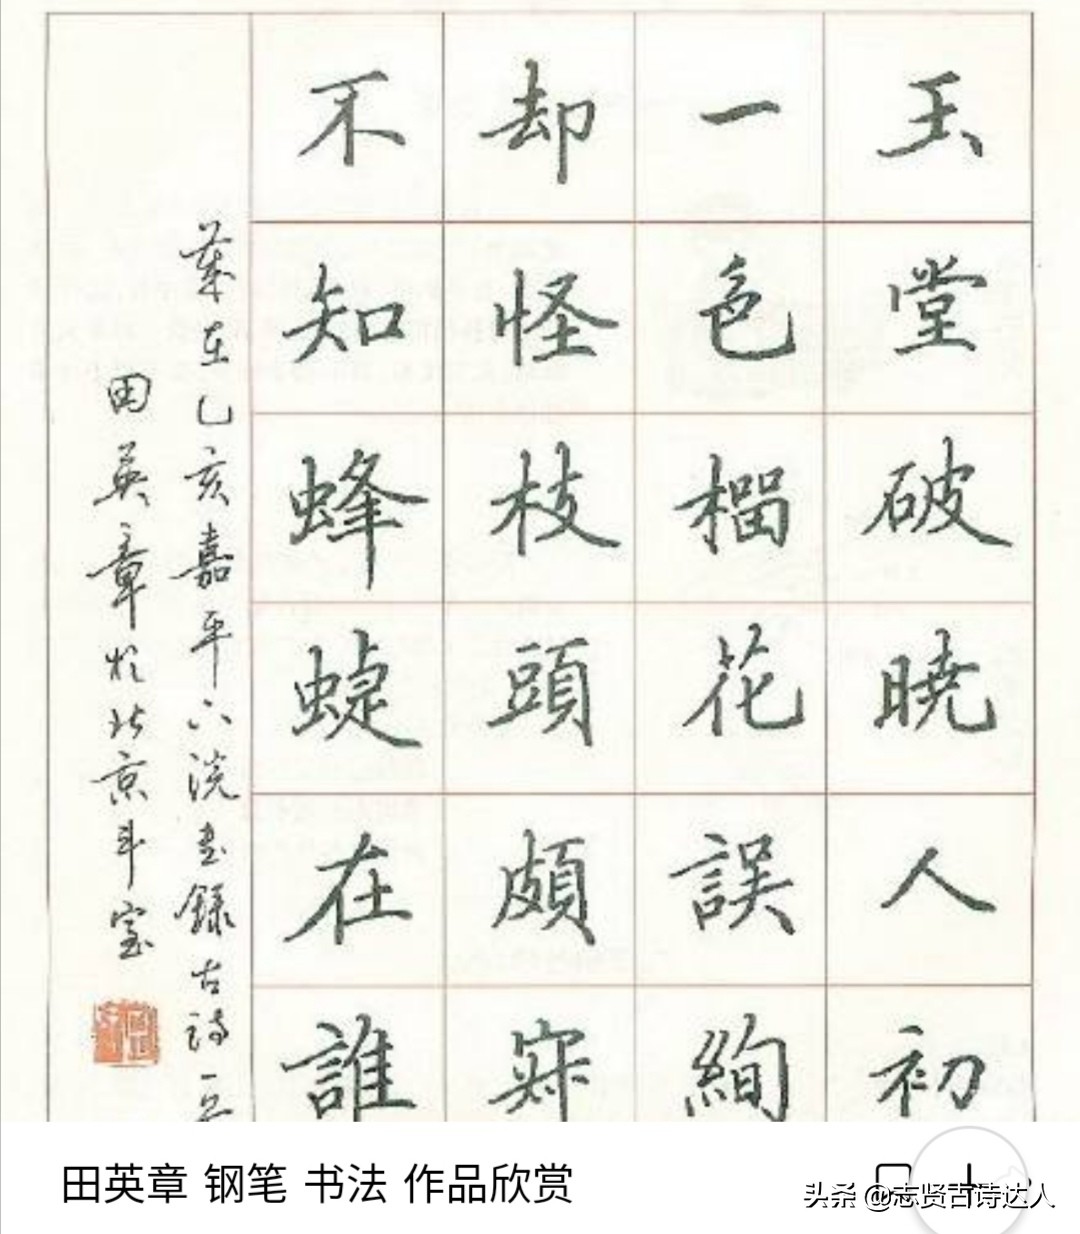 玉堂破曉人初
一色榴花誤絢
却怪枝頭頗寂
不知蜂蜨在誰
歲在乙亥嘉平六浣書録古詩一
田英章於北京斗室
田英章 钢笔 书法 作品欣赏
头条 @志贤古诗达人